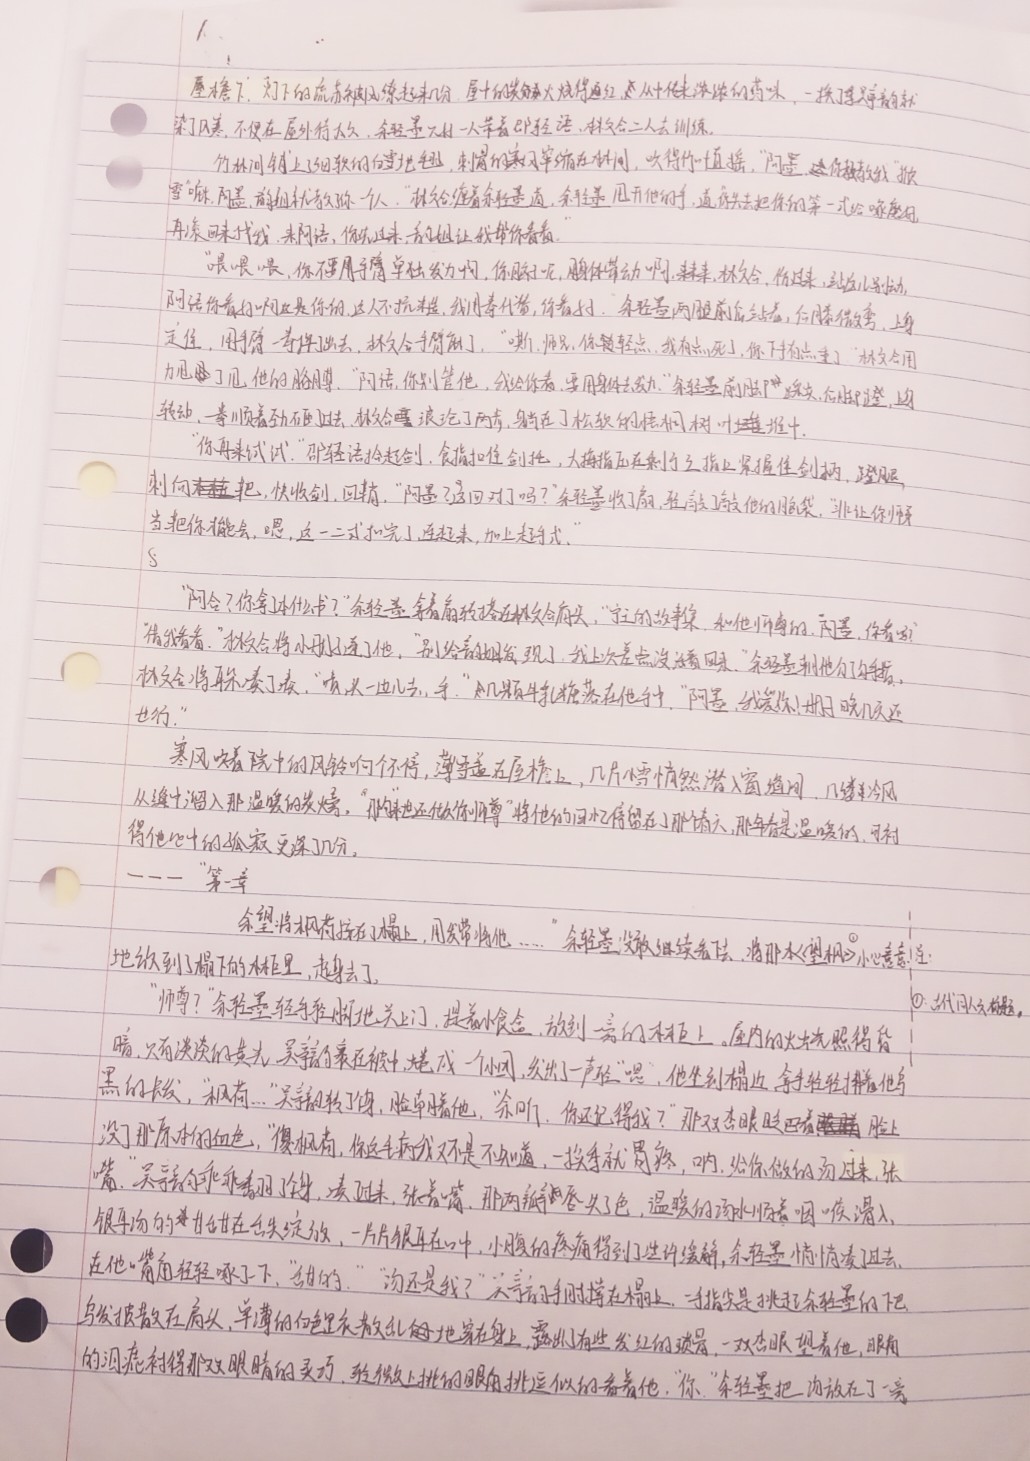 屋檐下,灯下的流苏被风缭起来几分,屋中的炭火烧得通红,从中传来淡淡的药味,一换季吴韵就
染了风寒,不便在屋外待太久,余轻墨只好一人带着邵轻语、林文合二人去训练。
竹林间铺上了细软的白雪地毯,刺骨的寒风穿梭在林间,吹得竹叶直摇,“阿墨,你教教我”“掀
雪”嘛,阿墨,韵姐就教你一个人,”林文合缠着余轻墨道,余轻墨甩开他的手,道:“你先去把你的第一式给
再滚回来找我,来阿语,你先过来,韵姐让我帮你看看。”
“喂喂喂,你不要用手臂单独发力啊,你腰呢,腰体带动啊,来来来,林文合,你过来,站这儿别动,
阿语你看好啊,这人不抗走,我用拳代替,你看好。”余轻墨两腿前后站着,后膝微弯,上身
定住,用手臂一拳挥了出去,林文合手臂“嘶,师兄,你轻点,我有点死了,你下手有点重了”林文合用
力甩了甩他的胳膊。“阿语,你别管他,我给你看,要用身体去发力。”余轻墨前脚踩实,后脚蹬,上身
转动,一拳顺着劲砸了过去,林文合踉跄了两步,躺在了松软的梧桐树叶堆中。
“你再来试试。”邵轻语拾起剑,食指扣住剑托,大拇指压在剩余三指上紧握住剑柄,蹬腿,
刺向靶,快收剑,回鞘,“阿墨?这回对了吗?”余轻墨收了扇,轻敲了敲他的脑袋,“非让你师哥
当靶你才能会,嗯,这一二式扣完了连起来,加上起手式。”
“阿合?你拿了本什么书?”余轻墨拿着扇轻搭在林文合肩头,“宗主的故事集,和他师尊的,阿墨,你看吗?”
“借我看看。”林文合将小册子递了他,“别给韵姐发现了,我上次差点没活着回来。”余轻墨
林文合将耳朵凑了凑,“啧,头一边儿去,手。”几颗牛乳糖落在他手中,“阿墨,我爱你!册子晚几天还
也行。”
寒风吹着院中的风铃响个不停,薄雪盖在屋檐上,几片小雪悄然潜入窗缝间,几缕冷风
从缝中溜入那温暖的炭燥,“那来世还做你师尊”将他的回忆停留在了那个春天,那年春是温暖的,可衬
得他心中的孤寂更深了几分。
——— “第一章
余望将枫荷按在了榻上,用发带将他……” 余轻墨没敢继续看下去,将那本《望枫》①小心意意 注:
地放到了榻下的木柜里,起身去了。
①:古代同人文标题。
“师尊?”余轻墨轻手轻脚地关上门,提着小食盒,放到一旁的木柜上。屋内的火光照得昏
暗,只有淡淡的黄光,吴韵裹在被中,蜷成一个小团,发出了一声轻“嗯”,他坐到榻边,拿手轻轻捋着他乌
黑的长发,“枫荷…”吴韵转了身,脸埋着他,“余听,你还记得我?”那双杏眼眨巴着 脸上
没了那原本的血色,“傻枫荷,你这毛病我又不是不知道,一换季就胃疼,呐,给你做的汤过来,张
嘴。”吴韵乖乖翻了个身,凑了过来,张着嘴,那两瓣唇失了色,温暖的汤水顺着咽喉滑入,
银耳汤的甘甜在舌尖绽放,一片片银耳在口中,小腹的疼痛得到了些许缓解,余轻墨悄悄凑了过去,
在他嘴角轻轻啄了下,“甜的。”“汤还是我?”吴韵手肘撑在榻上,一手指尖是挑起余轻墨的下巴
乌发披散在肩头,单薄的白色里衣散乱地穿在身上,露出有些发红的锁骨,一双杏眼望着他,眼角
的泪痣衬得那双眼睛的灵巧,轻微上挑的眼角挑逗似的看着他,“你”余轻墨把汤放在了一旁